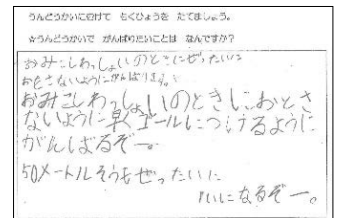 うんどうかいに向けて もくひょうを たてましょう。
☆うんどうかいで がんばりたいことは なんですか?
おみこしわっしょいのときにぜったいに
おとさないようにがんばります。
おみこしわっしょいのときにおとさ
ないように早くゴールにつけるように
がんばるぞー。
50メートルそうもぜったいに
いになるぞー。